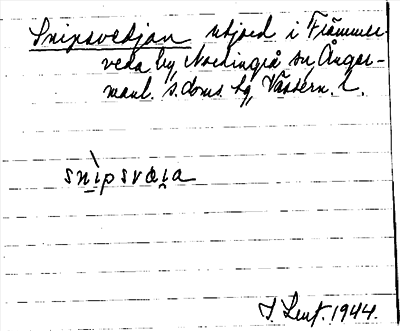 Snipsvedjan utjord i Främmer-
veda by, Nordingrå sn, Ånger-
manl. s. doms. hg, Västern. l.
snìpsvæia
J. Lent. 1944.